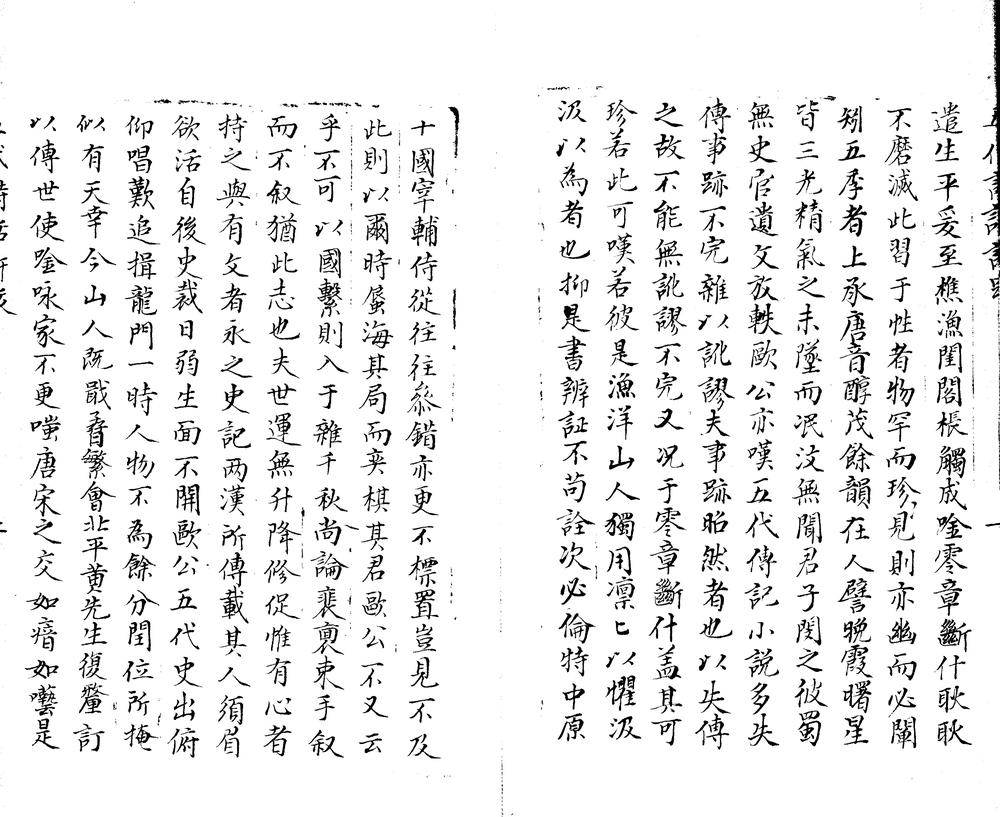 遣生平爰至樵漁閨閣棖觸成唫零章斷什耿耿
不磨滅此習于性者物罕而珍見則亦幽而必闡
矧五季者上承唐音醇茂餘韻在人譬晚霞曙星
皆三光精氣之未墜而泯没無聞君子閔之彼蜀
無史官遺文放軼歐公亦嘆五代傳記小説多失
傳事跡不完雜以訛謬夫事跡昭然者也以失傳
之故不能無訛謬不完又况于零章斷什盖其可
珍若此可嘆若彼是漁洋山人獨用凛匕以懼汲
汲以為者也抑是書辨証不苟詮次必倫特中原
十國宰輔侍從往往叅錯亦更不標置豈見不及
此則以爾時蜃海其局而奕棋其君歐公不又云
乎不可以國繫則入于雜千秋尚論裴裒束手叙
而不叙猶此志也夫世運無升降修促惟有心者
持之與有文者永之史記两漢所傳載其人須眉
欲活自後史裁日弱生面不開歐公五代史出俯
仰唱歎追揖龍門一時人物不為餘分閏位所掩
似有天幸今山人既戢孴繁會北平黄先生復釐訂
以傳世使唫咏家不更嗤唐宋之交如瘖如囈是